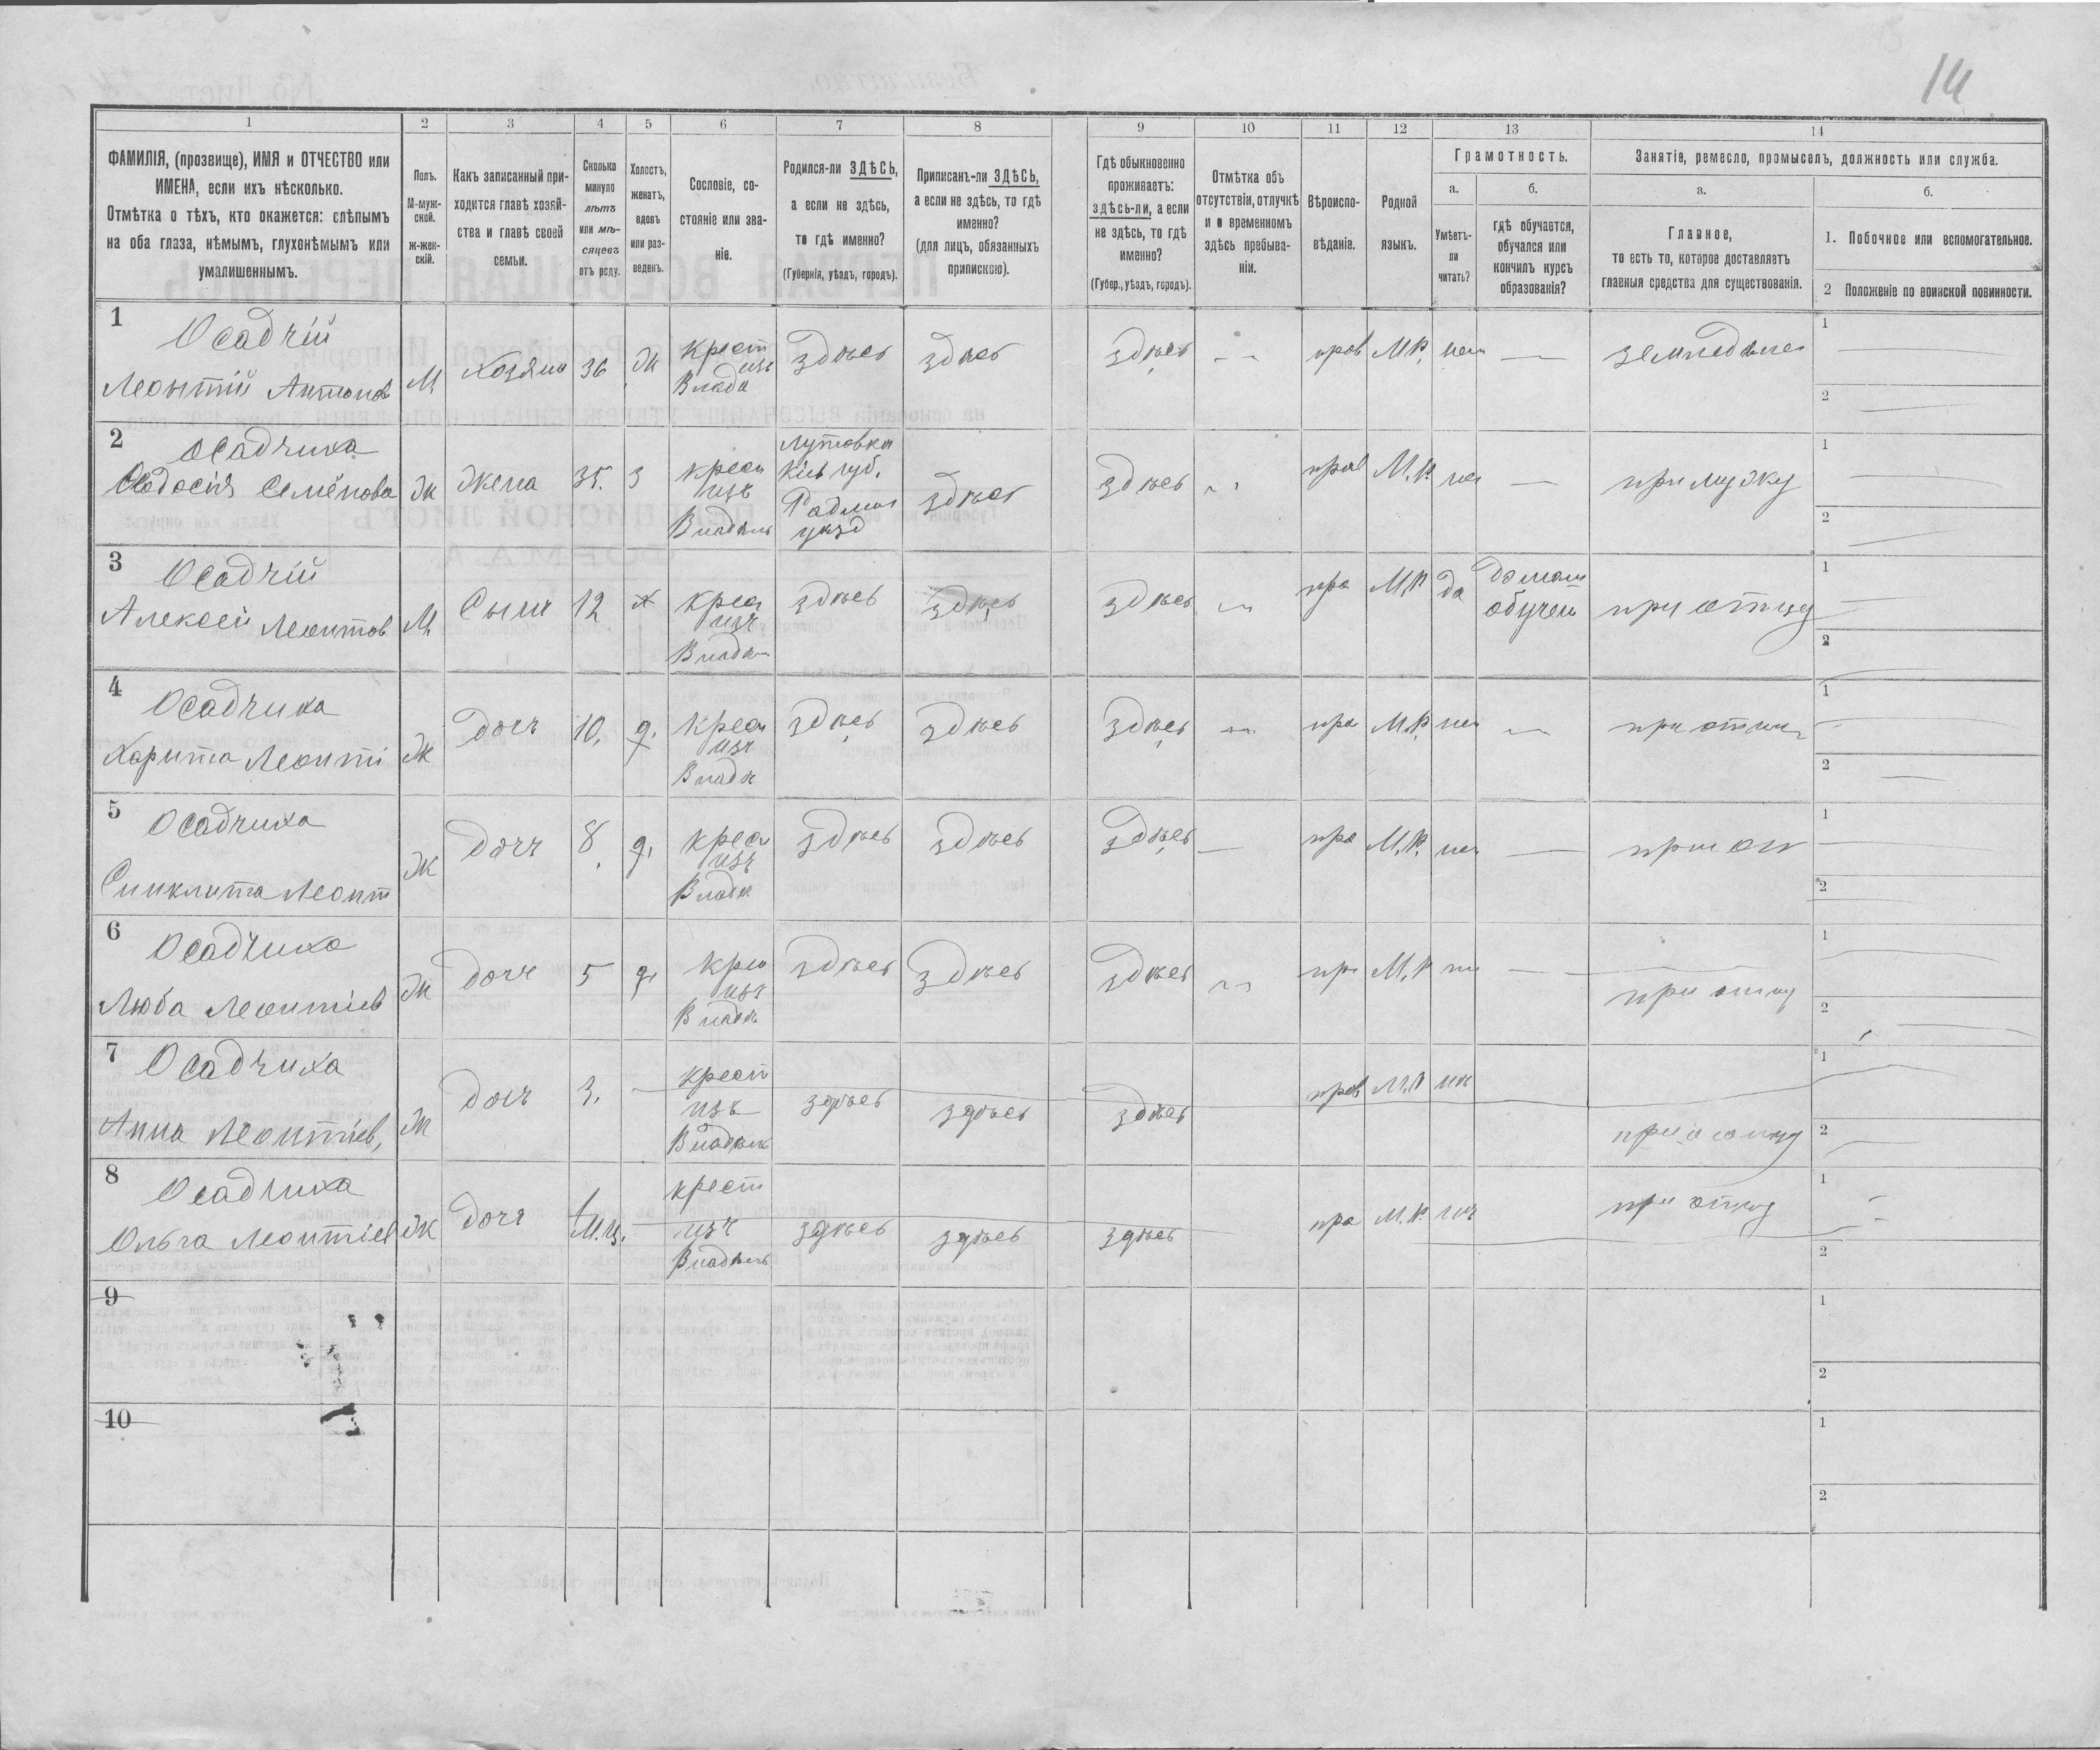 14
1
2
3
4
5
6
7
8
9
10
11
12
13
14
ФАМИЛІЯ, (прозвище), ИМЯ и ОТЧЕСТВО или
ИМЕНА, если ихъ нѣсколько.
Отмѣтка о тѣхъ, кто окажется: слѣпымъ
на оба глаза, нѣмымъ, глухонѣмымъ или
умалишеннымъ.
Полъ.
М-муж-
ской.
ж-жен-
скій.
Какъ записанный при-
ходится главѣ хозяй-
ства и главѣ своей
семьи.
Сколько
минуло
лѣтъ
или мѣ-
сяцевъ
отъ роду.
Холостъ,
женатъ,
вдовъ
или раз-
веденъ.
Сословіе, со-
стояніе или зва-
ніе.
Родился-ли ЗДѢСЬ,
а если не здѣсь,
то гдѣ именно?
(Губернія, уѣздъ, городъ).
Приписанъ-ли ЗДѢСЬ,
а если не здѣсь, то гдѣ
именно?
(для лицъ, обязанныхъ
припискою).
Гдѣ обыкновенно
проживаетъ:
здѣсь-ли, а если
не здѣсь, то гдѣ
именно?
(Губер., уѣздъ, городъ).
Отмѣтка объ
отсутствіи, отлучкѣ
и о временномъ
здѣсь пребыва-
ніи.
Вѣроиспо-
вѣданіе.
Родной
языкъ.
Грамотность.
а.
Умѣетъ-
ли
читать?
б.
гдѣ обучается,
обучался или
кончилъ курсъ
образованія?
Занятіе, ремесло, промыселъ, должность или служба.
а.
Главное,
то есть то, которое доставляетъ
главныя средства для существованія.
б.
1. Побочное или вспомогательное.
2 Положеніе по воинской повинности.
1
Осадчій
Леонтій Антонов
М
Хозяин
36
Ж
крест
изъ
Влад
здѣсь
здѣсь
здѣсь
прав
М.Р.
1
2
2
Осадчиха
Феодосія Семёнова
Ж
Жена
35.
З
крес
изъ
Кіев губ.
уѣзд
здѣсь
здѣсь
прав
М.Р.
при мужу
1
2
3
Осадчій
Алексей Леонтов
М.
Сынъ
12
х
крес
изъ
здѣсь
здѣсь
здѣсь
пра
М.Р
да
домаш
обучен
при отцу
1
2
4
Осадчиха
Харита Леонті
Ж
дочъ
10.
д.
крес
изъ
Влад
здѣсь
здѣсь
здѣсь
пра
М.Р.
1
2
5
Осадчиха
Синклита Леонт
Ж
дочъ
8
д.
крес
изъ
Влад
здѣсь
здѣсь
здѣсь
пра
М.Р.
при от
1
2
6
Осадчиха
Люба Леонтіев
Ж
дочъ
5
д.
крес
изъ
Влад
здѣсь
здѣсь
здѣсь
пр
М.Р
при отцу
1
2
7
Осадчиха
Анна Леонтіев,
Ж
дочъ
3.
крест
изъ
здѣсь
здѣсь
здѣсь
прав
М.Р
1
2
8
Осадчиха
Ольга Леонтіев
Ж
дочъ
1
М.ц.
крест
изъ
Владѣль
здѣсь
здѣсь
здѣсь
пра
М.Р.
при отцу
1
2
9
1
2
10
1
2